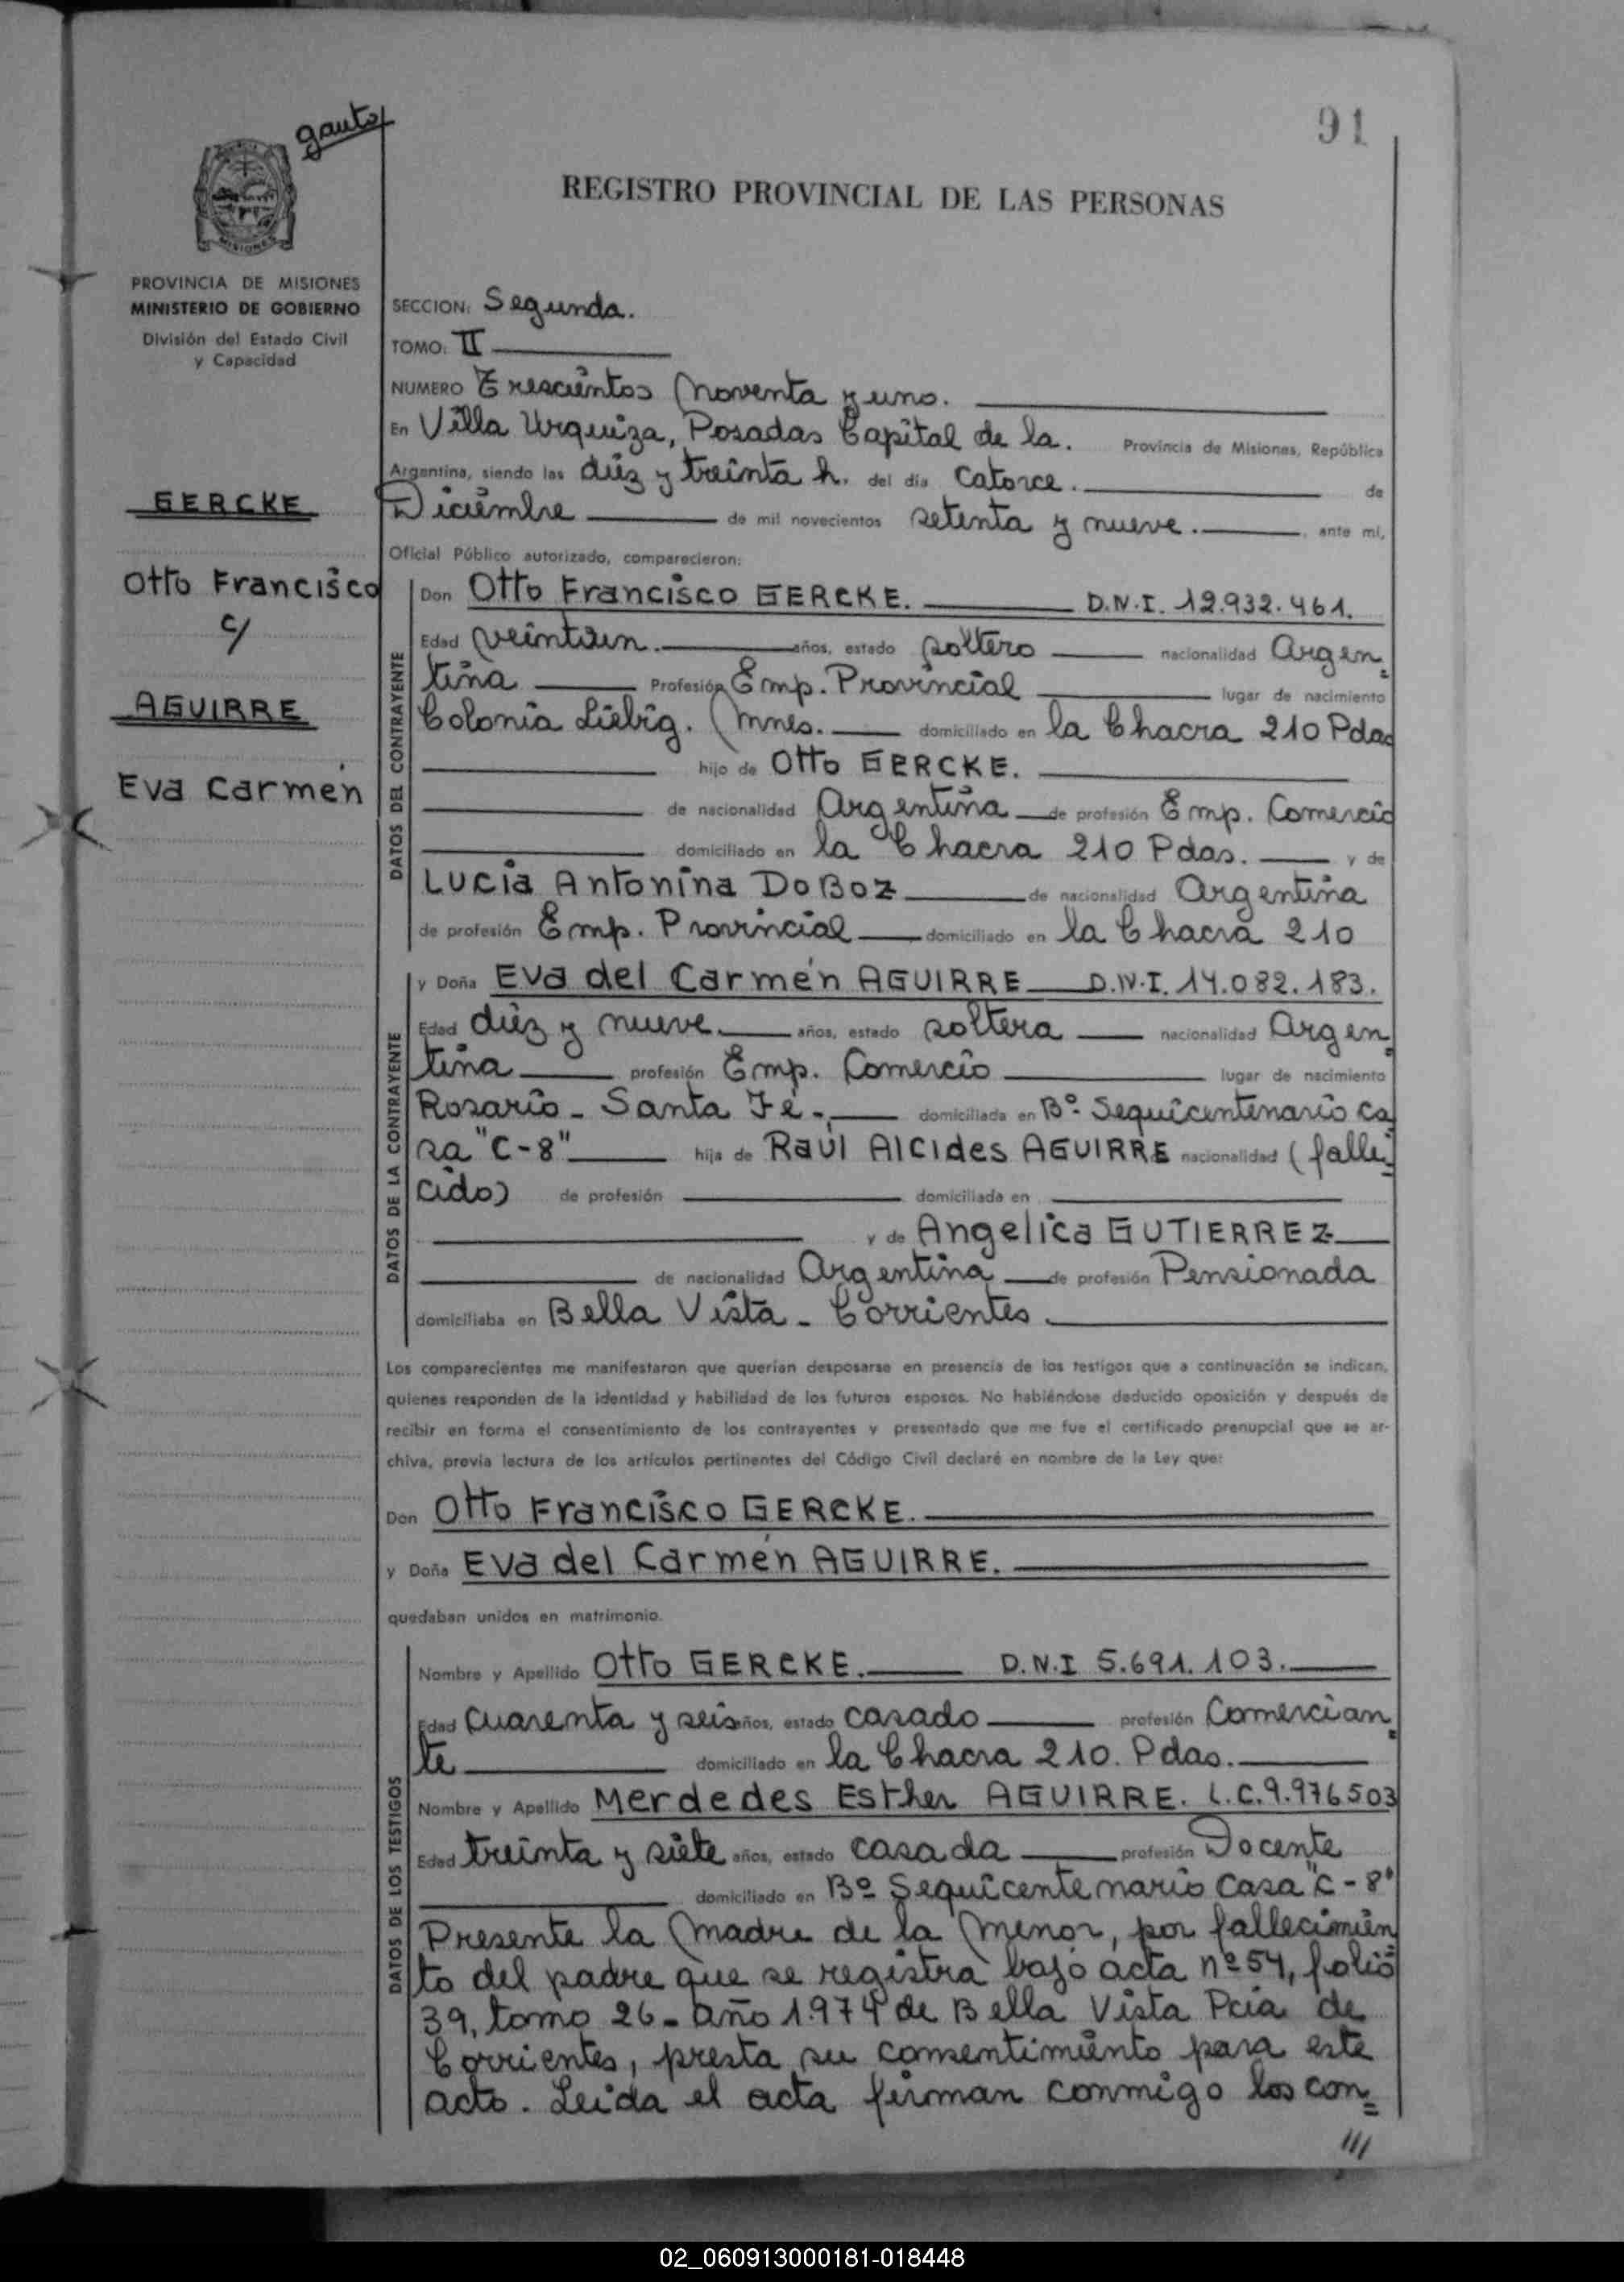 91
gauto
REGISTRO PROVINCIAL DE LAS PERSONAS
MISIONES
PROVINCIA DE MISIONES
MINISTERIO DE GOBIERNO
División del Estado Civil
y Capacidad
GERCKE
Otto Francisco
c/
AGUIRRE
Eva Carmen
SECCION: Segunda.
TOMO: II
NUMERO Trescientos Noventa y uno.
En Villa Urquiza, Posadas Capital de la. Provincia de Misiones, República
Argentina, siendo las diéz y treinta h. del día catorce. de
Diciembre de mil novecientos setenta y nueve. , ante mi,
Oficial Público autorizado, comparecieron:
DATOS DEL CONTRAYENTE
Don Otto Francisco GERCKE. D.N.I. 12.932.461.
Edad veintiun. años, estado soltero nacionalidad Argen=
tina Profesión Emp. Provincial lugar de nacimiento
Colonia Liebig. Mnes. domiciliado en la Chacra 210 Pdas
hijo de Otto GERCKE.
de nacionalidad Argentina de profesión Emp. Comercio
domiciliado en la Chacra 210 Pdas. y de
Lucia Antonina DOBOZ de nacionalidad Argentina
de profesión Emp. Provincial domiciliado en la Chacra 210
DATOS DE LA CONTRAYENTE
y Doña Eva del Carmen AGUIRRE D.N.I. 14.082.183.
Edad diéz y nueve años, estado soltera nacionalidad Argen=
tina profesión Emp. Comercio lugar de nacimiento
Rosario - Santa Fé. domiciliada en Bº Sequicentenario ca
sa "C-8" hija de Raúl Alcides AGUIRRE nacionalidad (falle=
cido) de profesión domiciliada en
y de Angelica GUTIERREZ
de nacionalidad Argentina de profesión Pensionada
domiciliaba en Bella Vista - Corrientes.
Los comparecientes me manifestaron que querían desposarse en presencia de los testigos que a continuación se indican,
quienes responden de la identidad y habilidad de los futuros esposos. No habiéndose deducido oposición y después de
recibir en forma el consentimiento de los contrayentes y presentado que me fue el certificado prenupcial que se ar-
chiva, previa lectura de los artículos pertinentes del Código Civil declaré en nombre de la Ley que:
Don Otto Francisco GERCKE.
y Doña Eva del Carmen AGUIRRE.
quedaban unidos en matrimonio.
DATOS DE LOS TESTIGOS
Nombre y Apellido Otto GERCKE. D.N.I 5.691.103.
Edad cuarenta y seis años, estado casado profesión Comercian=
te domiciliado en la Chacra 210. Pdas.
Nombre y Apellido Merdedes Esther AGUIRRE. L.C.9.976503
Edad treinta y siete años, estado casada profesión Docente
domiciliado en Bº Sequicentenario Casa "C-8"
Presente la Madre de la Menor, por fallecimien
to del padre que se registra bajo acta nº54, folio
39, tomo 26 - año 1.974 de Bella Vista Pcia de
Corrientes, presta su consentimiento para este
acto. Leida el acta firman conmigo los con=
///
02_060913000181-018448